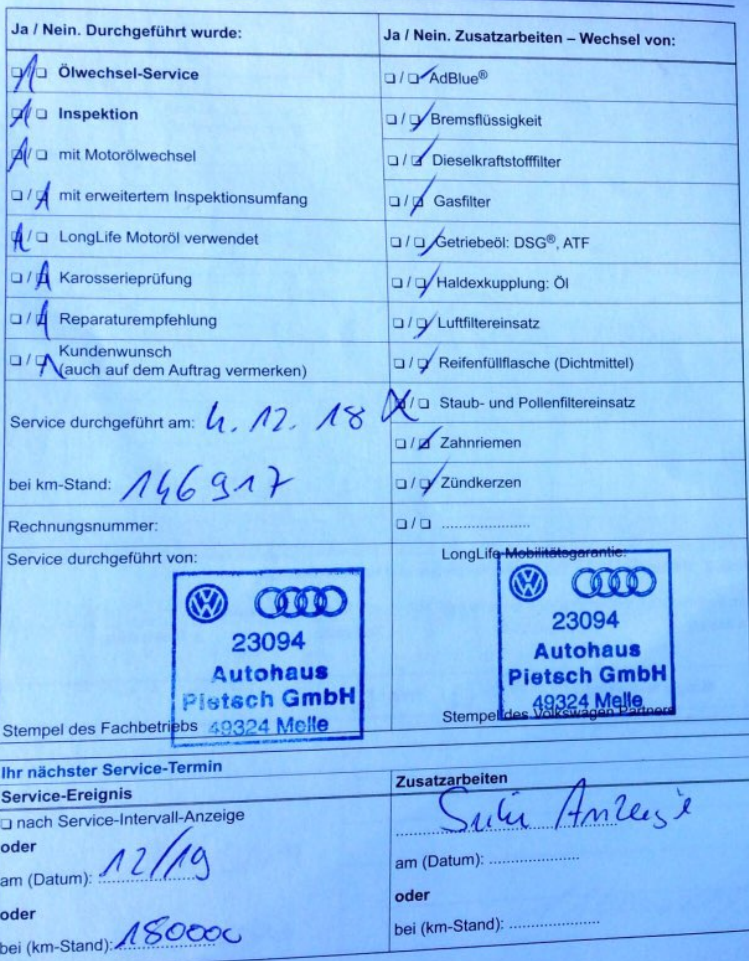 Ja / Nein. Durchgeführt wurde:
☐/☐ Ölwechsel-Service
☐/☐ Inspektion
☐/☐ mit Motorölwechsel
☐/☐ mit erweitertem Inspektionsumfang
☐/☐ LongLife Motoröl verwendet
☐/☐ Karosserieprüfung
☐/☐ Reparaturempfehlung
☐/☐ Kundenwunsch
(auch auf dem Auftrag vermerken)
Service durchgeführt am: 4. 12. 18
bei km-Stand: 146917
Rechnungsnummer:
Service durchgeführt von:
23094
Autohaus
Pietsch GmbH
49324 Melle
Stempel des Fachbetriebs
Ja / Nein. Zusatzarbeiten – Wechsel von:
☐/☐ AdBlue®
☐/☐ Bremsflüssigkeit
☐/☐ Dieselkraftstofffilter
☐/☐ Gasfilter
☐/☐ Getriebeöl: DSG®, ATF
☐/☐ Haldexkupplung: Öl
☐/☐ Luftfiltereinsatz
☐/☐ Reifenfüllflasche (Dichtmittel)
☐/☐ Staub- und Pollenfiltereinsatz
☐/☐ Zahnriemen
☐/☐ Zündkerzen
☐/☐ .....................
LongLife Mobilitätsgarantie:
23094
Autohaus
Pietsch GmbH
49324 Melle
Stempel des Volkswagen Partners
Ihr nächster Service-Termin
Service-Ereignis
☐ nach Service-Intervall-Anzeige
oder
am (Datum): 12/19
oder
bei (km-Stand): 180000
Zusatzarbeiten
Anzeige
am (Datum): .....................
oder
bei (km-Stand): .....................